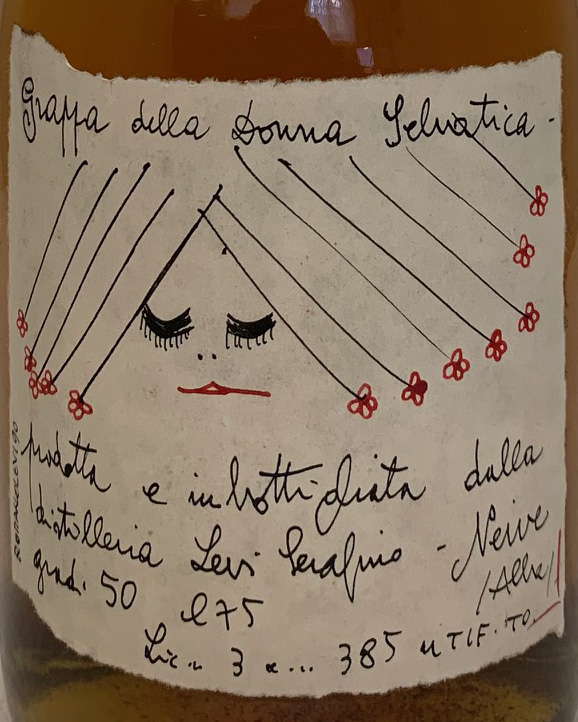 Grappa della Donna Selvatica -
prodotta e imbottigliata dalla
distilleria Levi Serafino - Neive
gradi 50 l 75 /Alba/
Lic. n 3 385 UTIF. TO
ROMANO LEVI